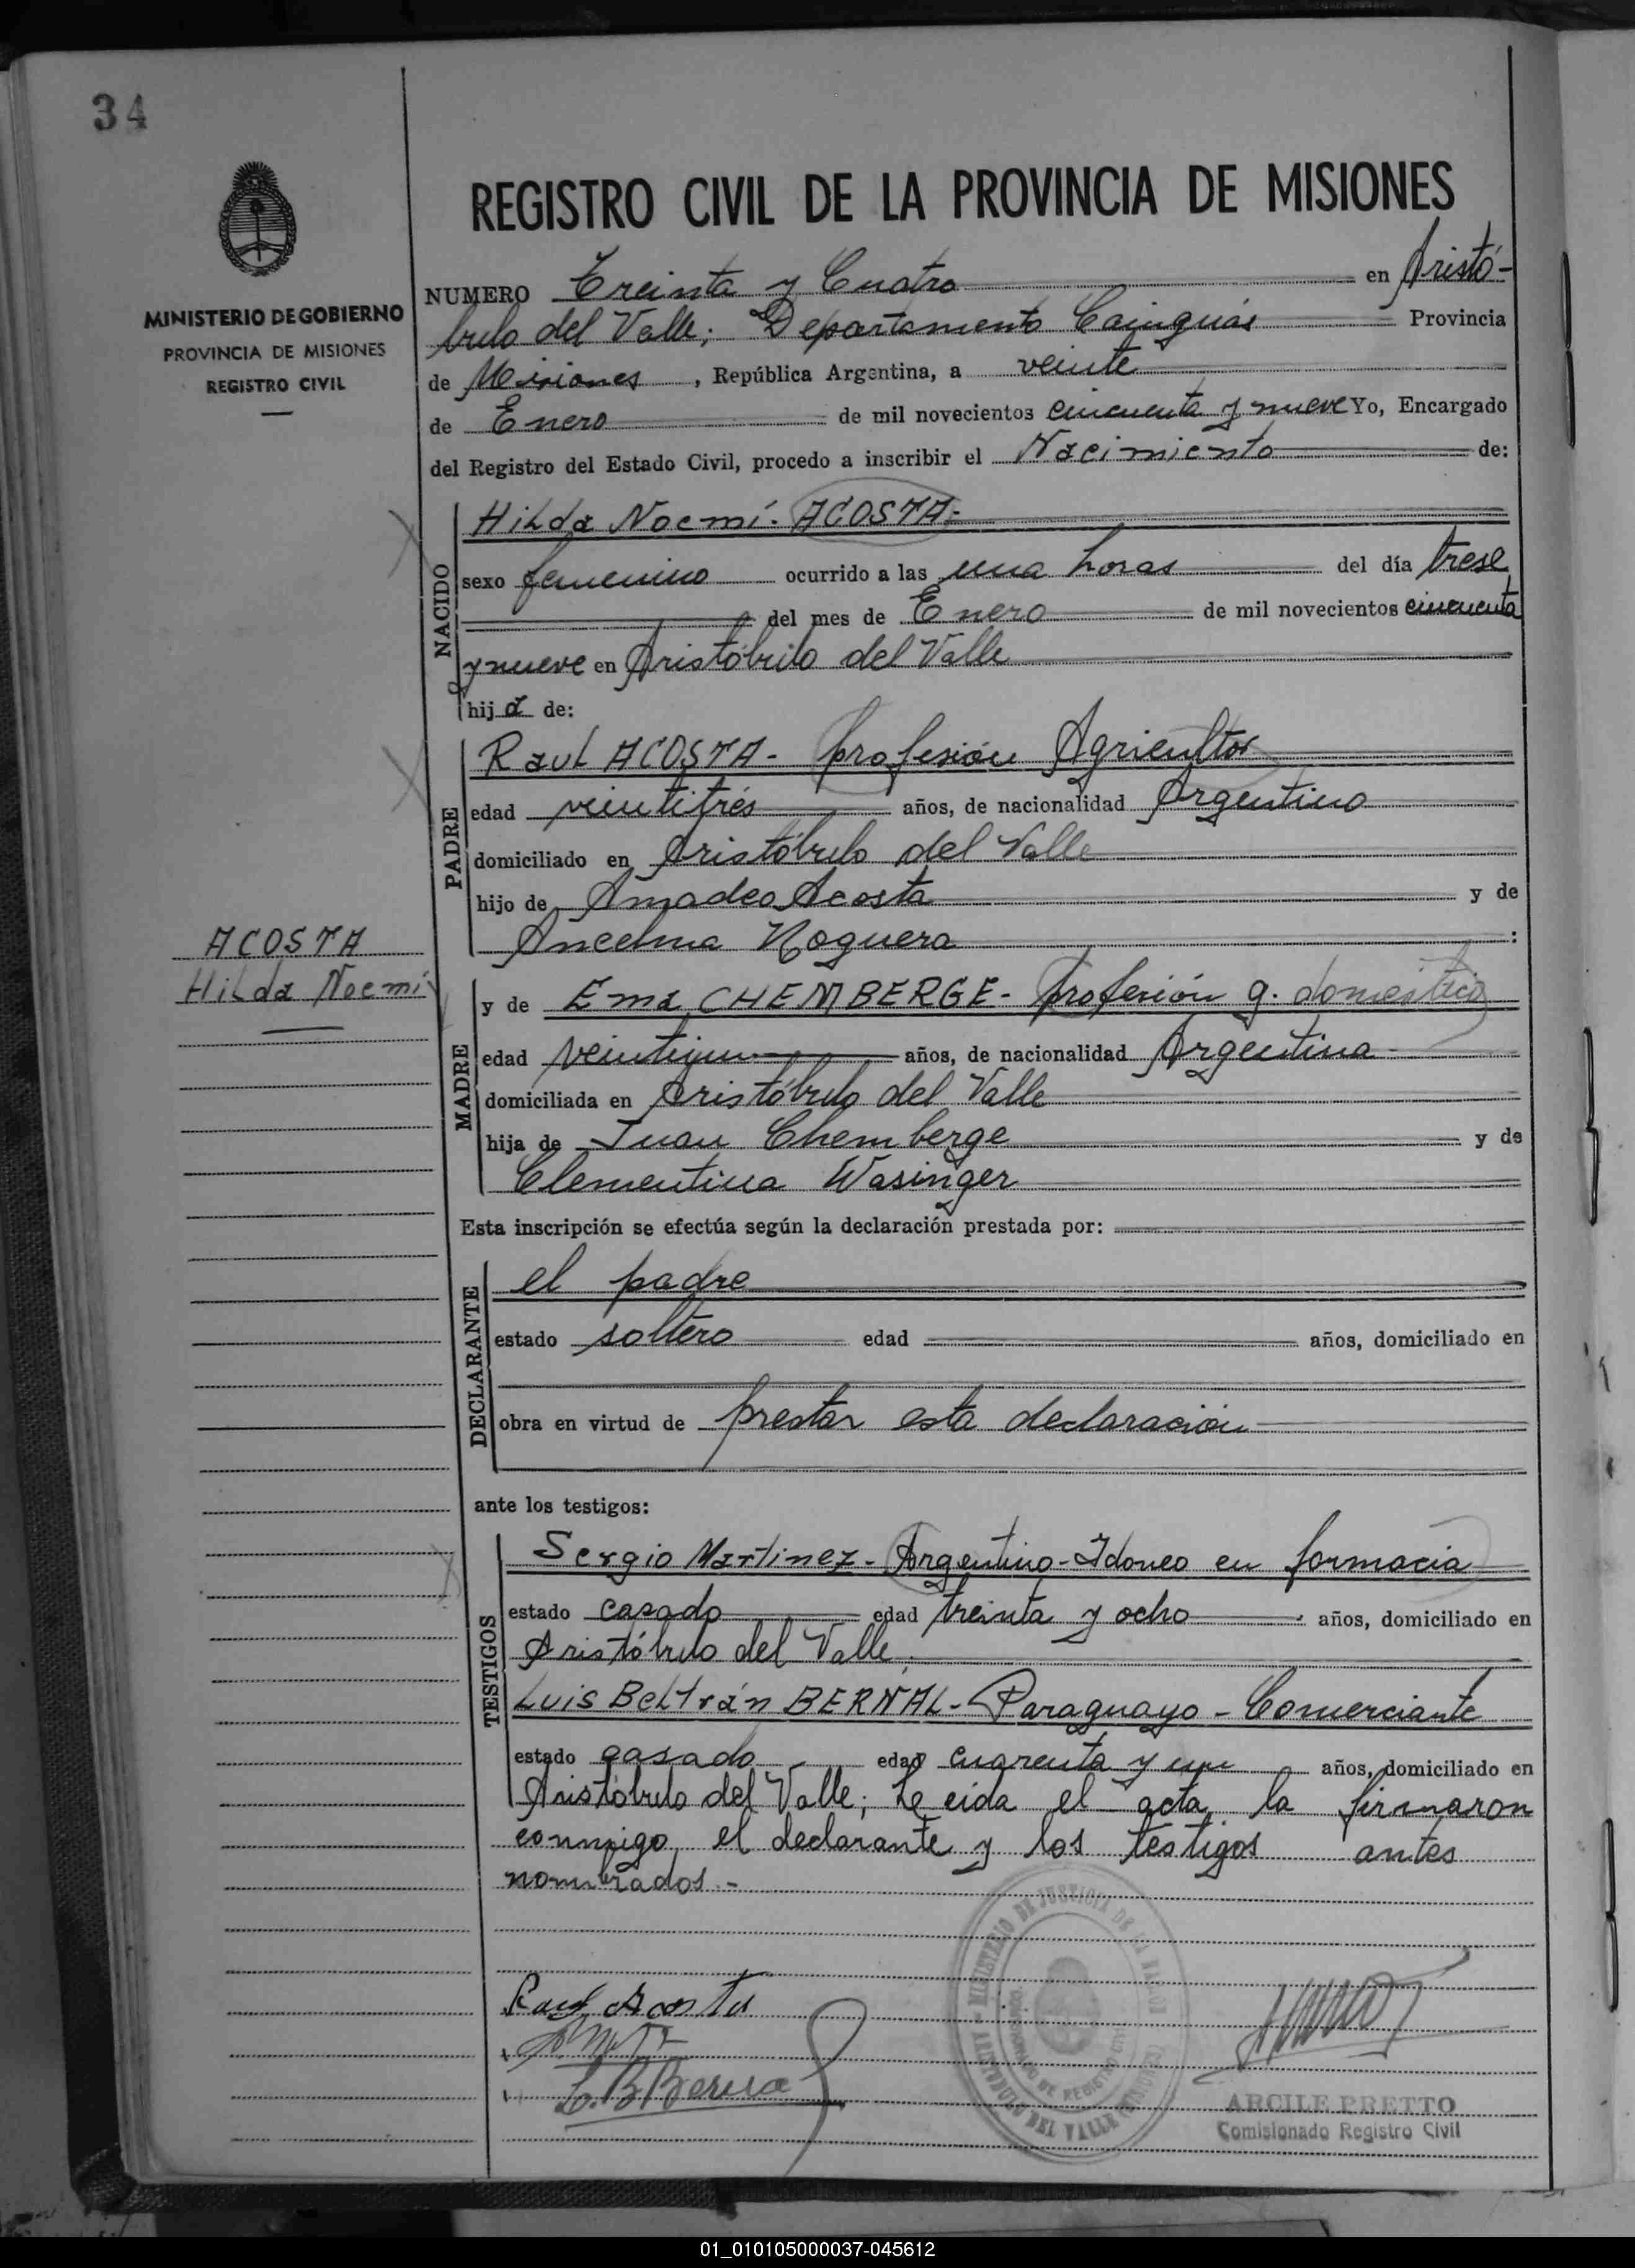 34
MINISTERIO DE GOBIERNO
PROVINCIA DE MISIONES
REGISTRO CIVIL
REGISTRO CIVIL DE LA PROVINCIA DE MISIONES
NUMERO Treinta y Cuatro en Aristó-
bulo del Valle; Departamento Cainguás Provincia
de Misiones, República Argentina, a veinte
de Enero de mil novecientos cincuenta y nueve Yo, Encargado
del Registro del Estado Civil, procedo a inscribir el Nacimiento de:
NACIDO
Hilda Noemí. ACOSTA.-
sexo femenino ocurrido a las una horas del día trese
del mes de Enero de mil novecientos cincuenta
y nueve en Aristóbulo del Valle
hija de:
PADRE
Raul ACOSTA- profesión Agricultor
edad veintitrés años, de nacionalidad Argentino
domiciliado en Aristóbulo del Valle
hijo de Amadeo Acosta y de
Ancelma Noguera :
ACOSTA
Hilda Noemí
MADRE
y de Ema CHEMBERGE- profesión q. domestico
edad veintiun años, de nacionalidad Argentina
domiciliada en Aristóbulo del Valle
hija de Juan Chemberge y de
Clementina Wasinger
Esta inscripción se efectúa según la declaración prestada por:
DECLARANTE
el padre
estado soltero edad años, domiciliado en
obra en virtud de prestar esta declaración
ante los testigos:
TESTIGOS
Sergio Martinez- Argentino- Idoneo en farmacia
estado casado edad treinta y ocho años, domiciliado en
Aristóbulo del Valle.
Luis Beltrán BERNAL- Paraguayo - Comerciante
estado casado edad cuarenta y un años, domiciliado en
Aristóbulo del Valle; Leeida el acta, la firmaron
conmigo, el declarante y los testigos antes
nombrados.-
MINISTERIO DE JUSTICIA DE LA
ARISTOBULO DEL VALLE (MISIONES)
Raul Acosta
L. B. Bernal
ARCILE PRETTO
Comisionado Registro Civil
01_010105000037-045612